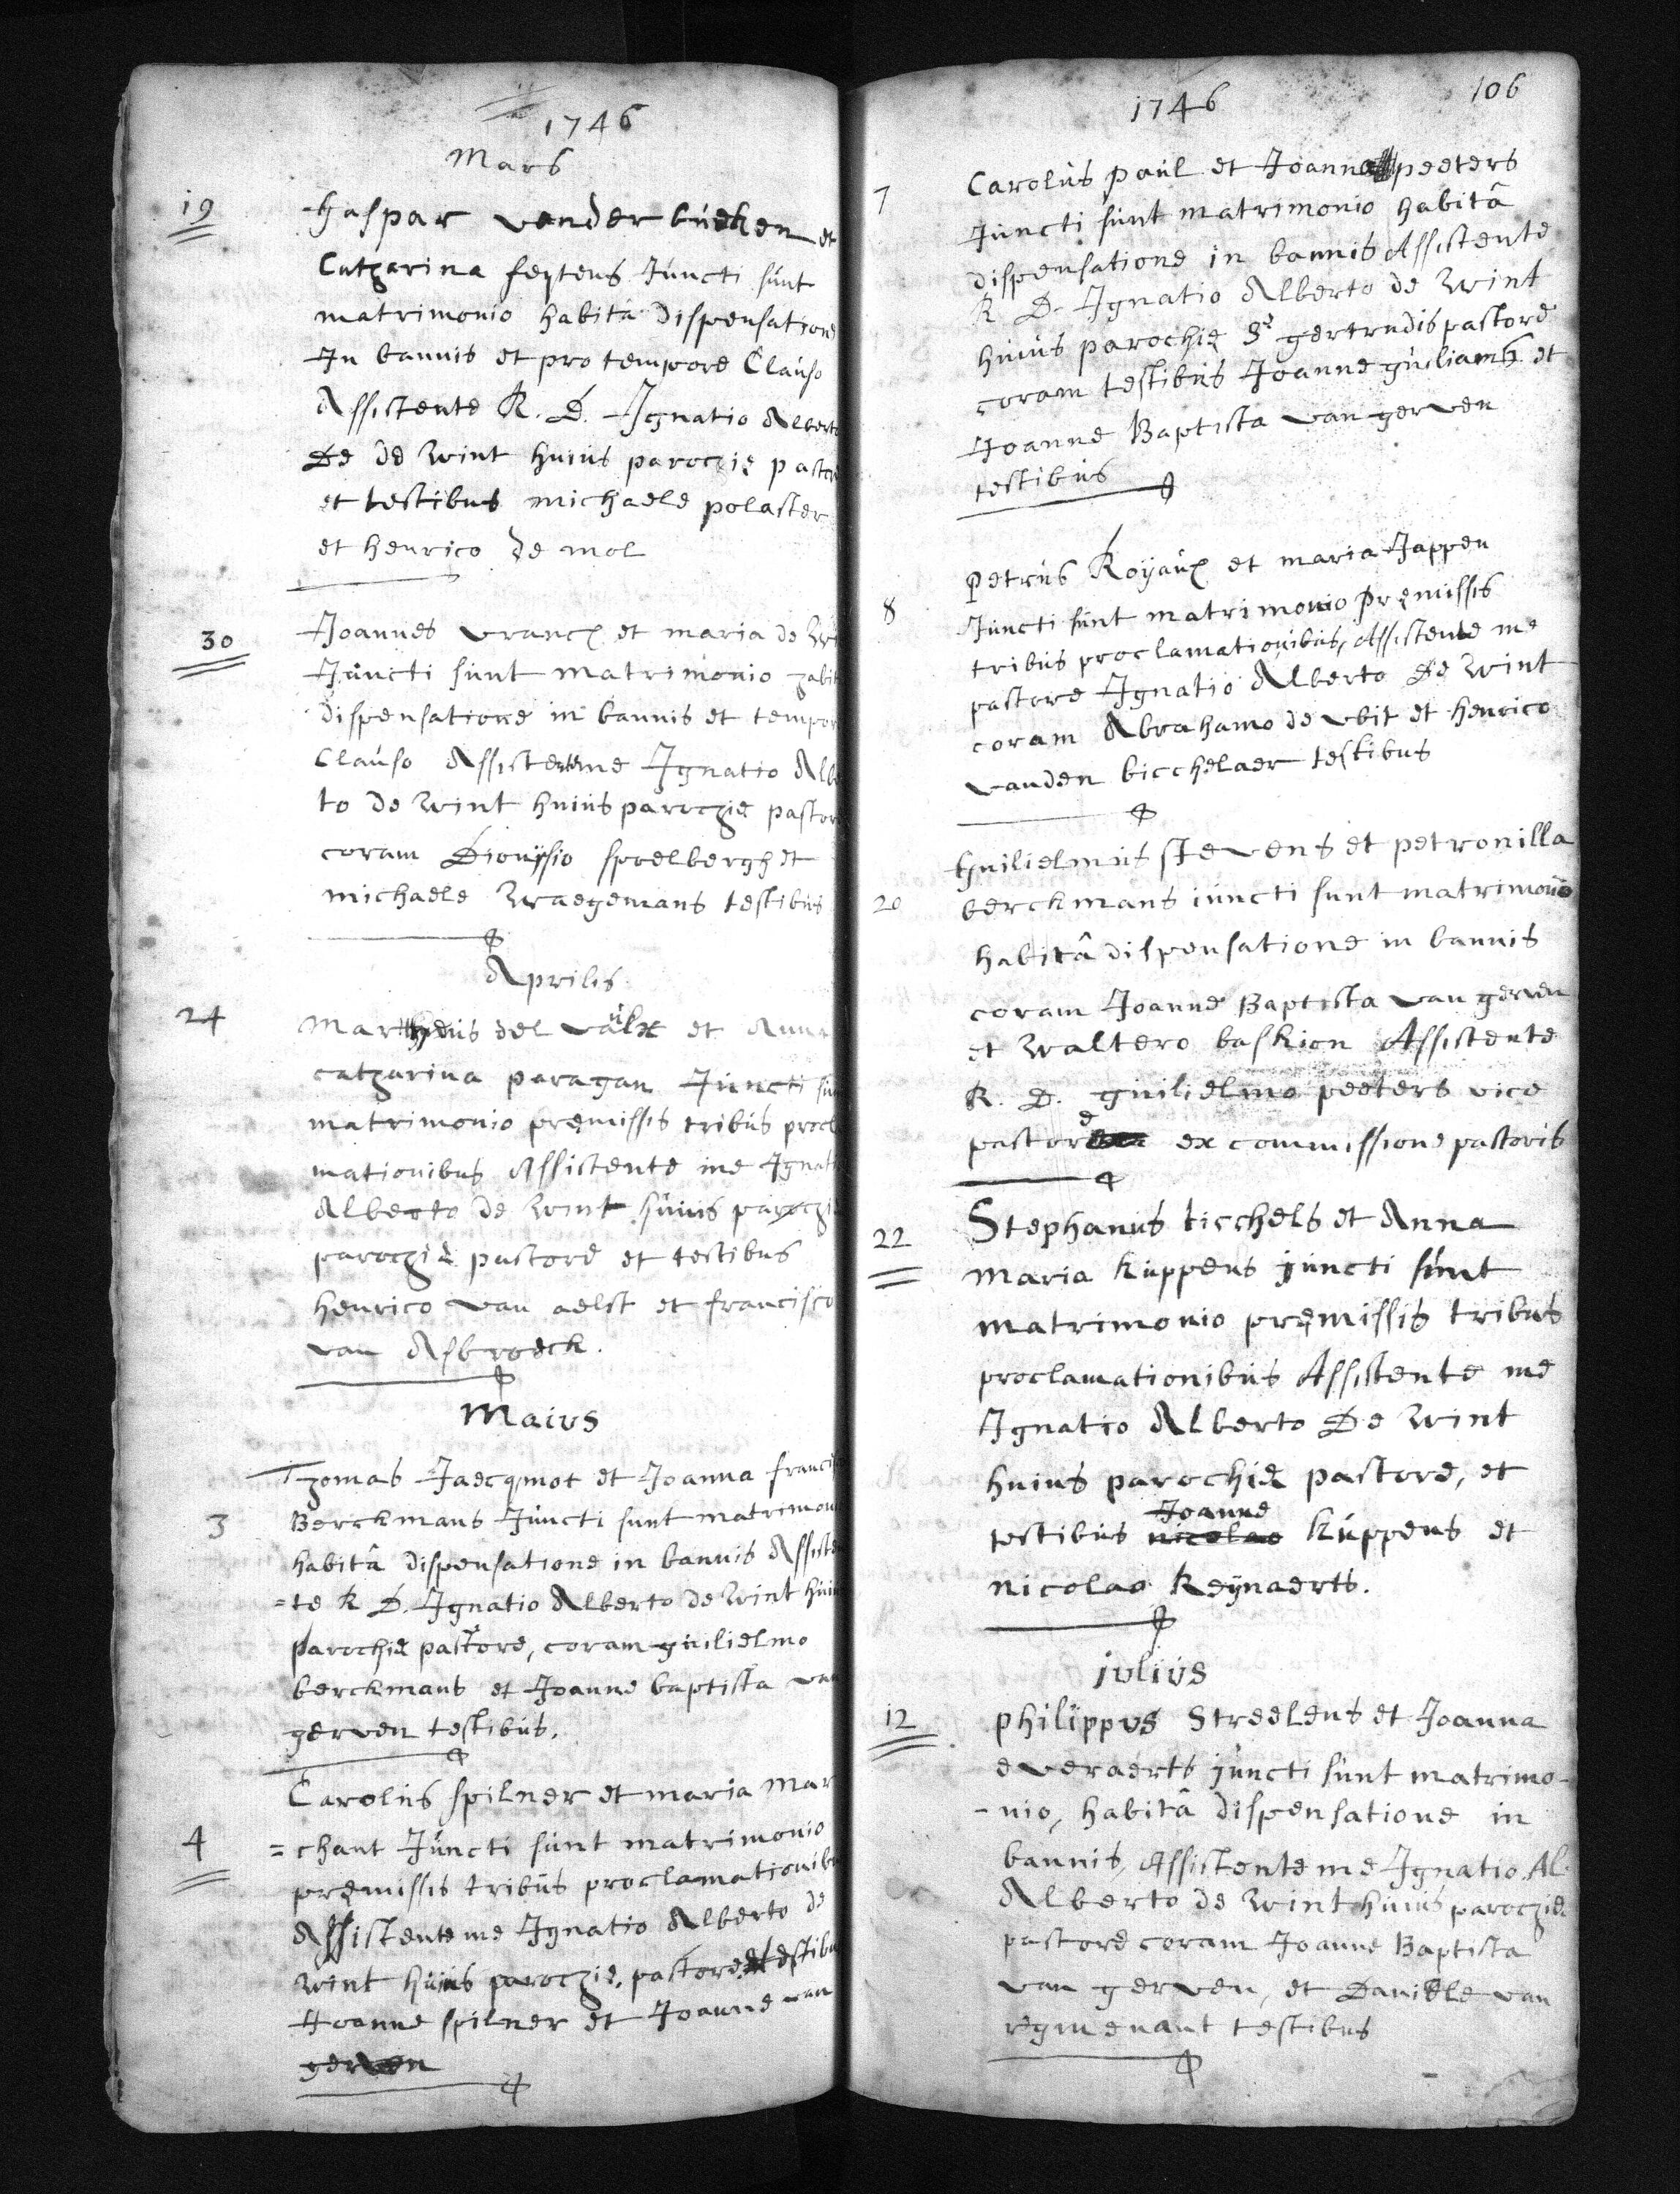 1746
Mars
19
Gaspar vander bueken et
Catharina feytens Juncti sunt
matrimonio habitâ dispensatione
In bannis et pro tempore Clauso
Assistente R. D. Ignatio Alberto
De de Wint huius parochię pastore
et testibus michaele polaster
et henrico de mol
30
Joannes vrancx et maria de
Juncti sunt matrimonio habit
dispensatione in bannis et tempor
Clauso Assistente me Ignatio Alb
to de Wint huius parochie pastore
coram Dionysio spoelbergh et
michaele Waegemans testibus
Aprilis
24
et Anna
catharina paragan Juncti su
matrimonio pręmissis tribus procl
mationibus Assistente me Ignati
Alberto de Wint huius parochi
parochię pastore et testibus
henrico van aelst et francisco
van Asbroeck.
Maivs
Thomas Jaecqmot et Joanna francis
3
Berckmans Juncti sunt matrimon
habitâ dispensatione in bannis Assiste
=te R D. Ignatio Alberto de Wint huiu
parochię pastore, coram guilielmo
berckmans et Joanne baptista van
gerven testibus.
Carolus spilner et maria Mar
4
=chant Juncti sunt matrimonio
pręmissis tribus proclamationibu
Assistente me Ignatio Alberto de
Wint huius parochię pastore et testibu
Joanne spilner et Joanne van
gerven
1746
106
7
Carolus paul et Joanna peeters
Juncti sunt matrimonio habitâ
dispensatione in bannis Assistente
R D. Ignatio Alberto de Wint
huius parochię Sę gertrudis pastore
coram testibus Joanne guiliams et
Joanne Baptista van gerven
testibus
Petrus Royaux et maria Jappen
8
Juncti sunt matrimonio pręmissis
tribus proclamationibus, Assistente me
pastore Ignatio Alberto De Wint
coram Abrahamo de vbit et henrico
vanden bicchelaer testibus
Guilielmus stevens et petronilla
20
berckmans iuncti sunt matrimonio
habitâ dispensatione in bannis
coram Joanne Baptista van gerven
et Waltero baskien Assistente
R. D. guilielmo peeters vice
pastore ex commissione pastoris
22
Stephanus ticchels et Anna
Maria kuppens juncti sunt
matrimonio pręmissis tribus
proclamationibus Assistente me
Ignatio Alberto De Wint
huius parochię pastore, et
Joanne
testibus nicolao kuppens et
nicolao Reynaerts.
iulius
12
philippus Streelens et Joanna
everaerts juncti sunt matrimo-
-nio, habitâ dispensatione in
bannis, Assistente me Ignatio Al.
Alberto de Wint huius parochię
pastore coram Joanne Baptista
van gerven, et Daniele van
regmenant testibus